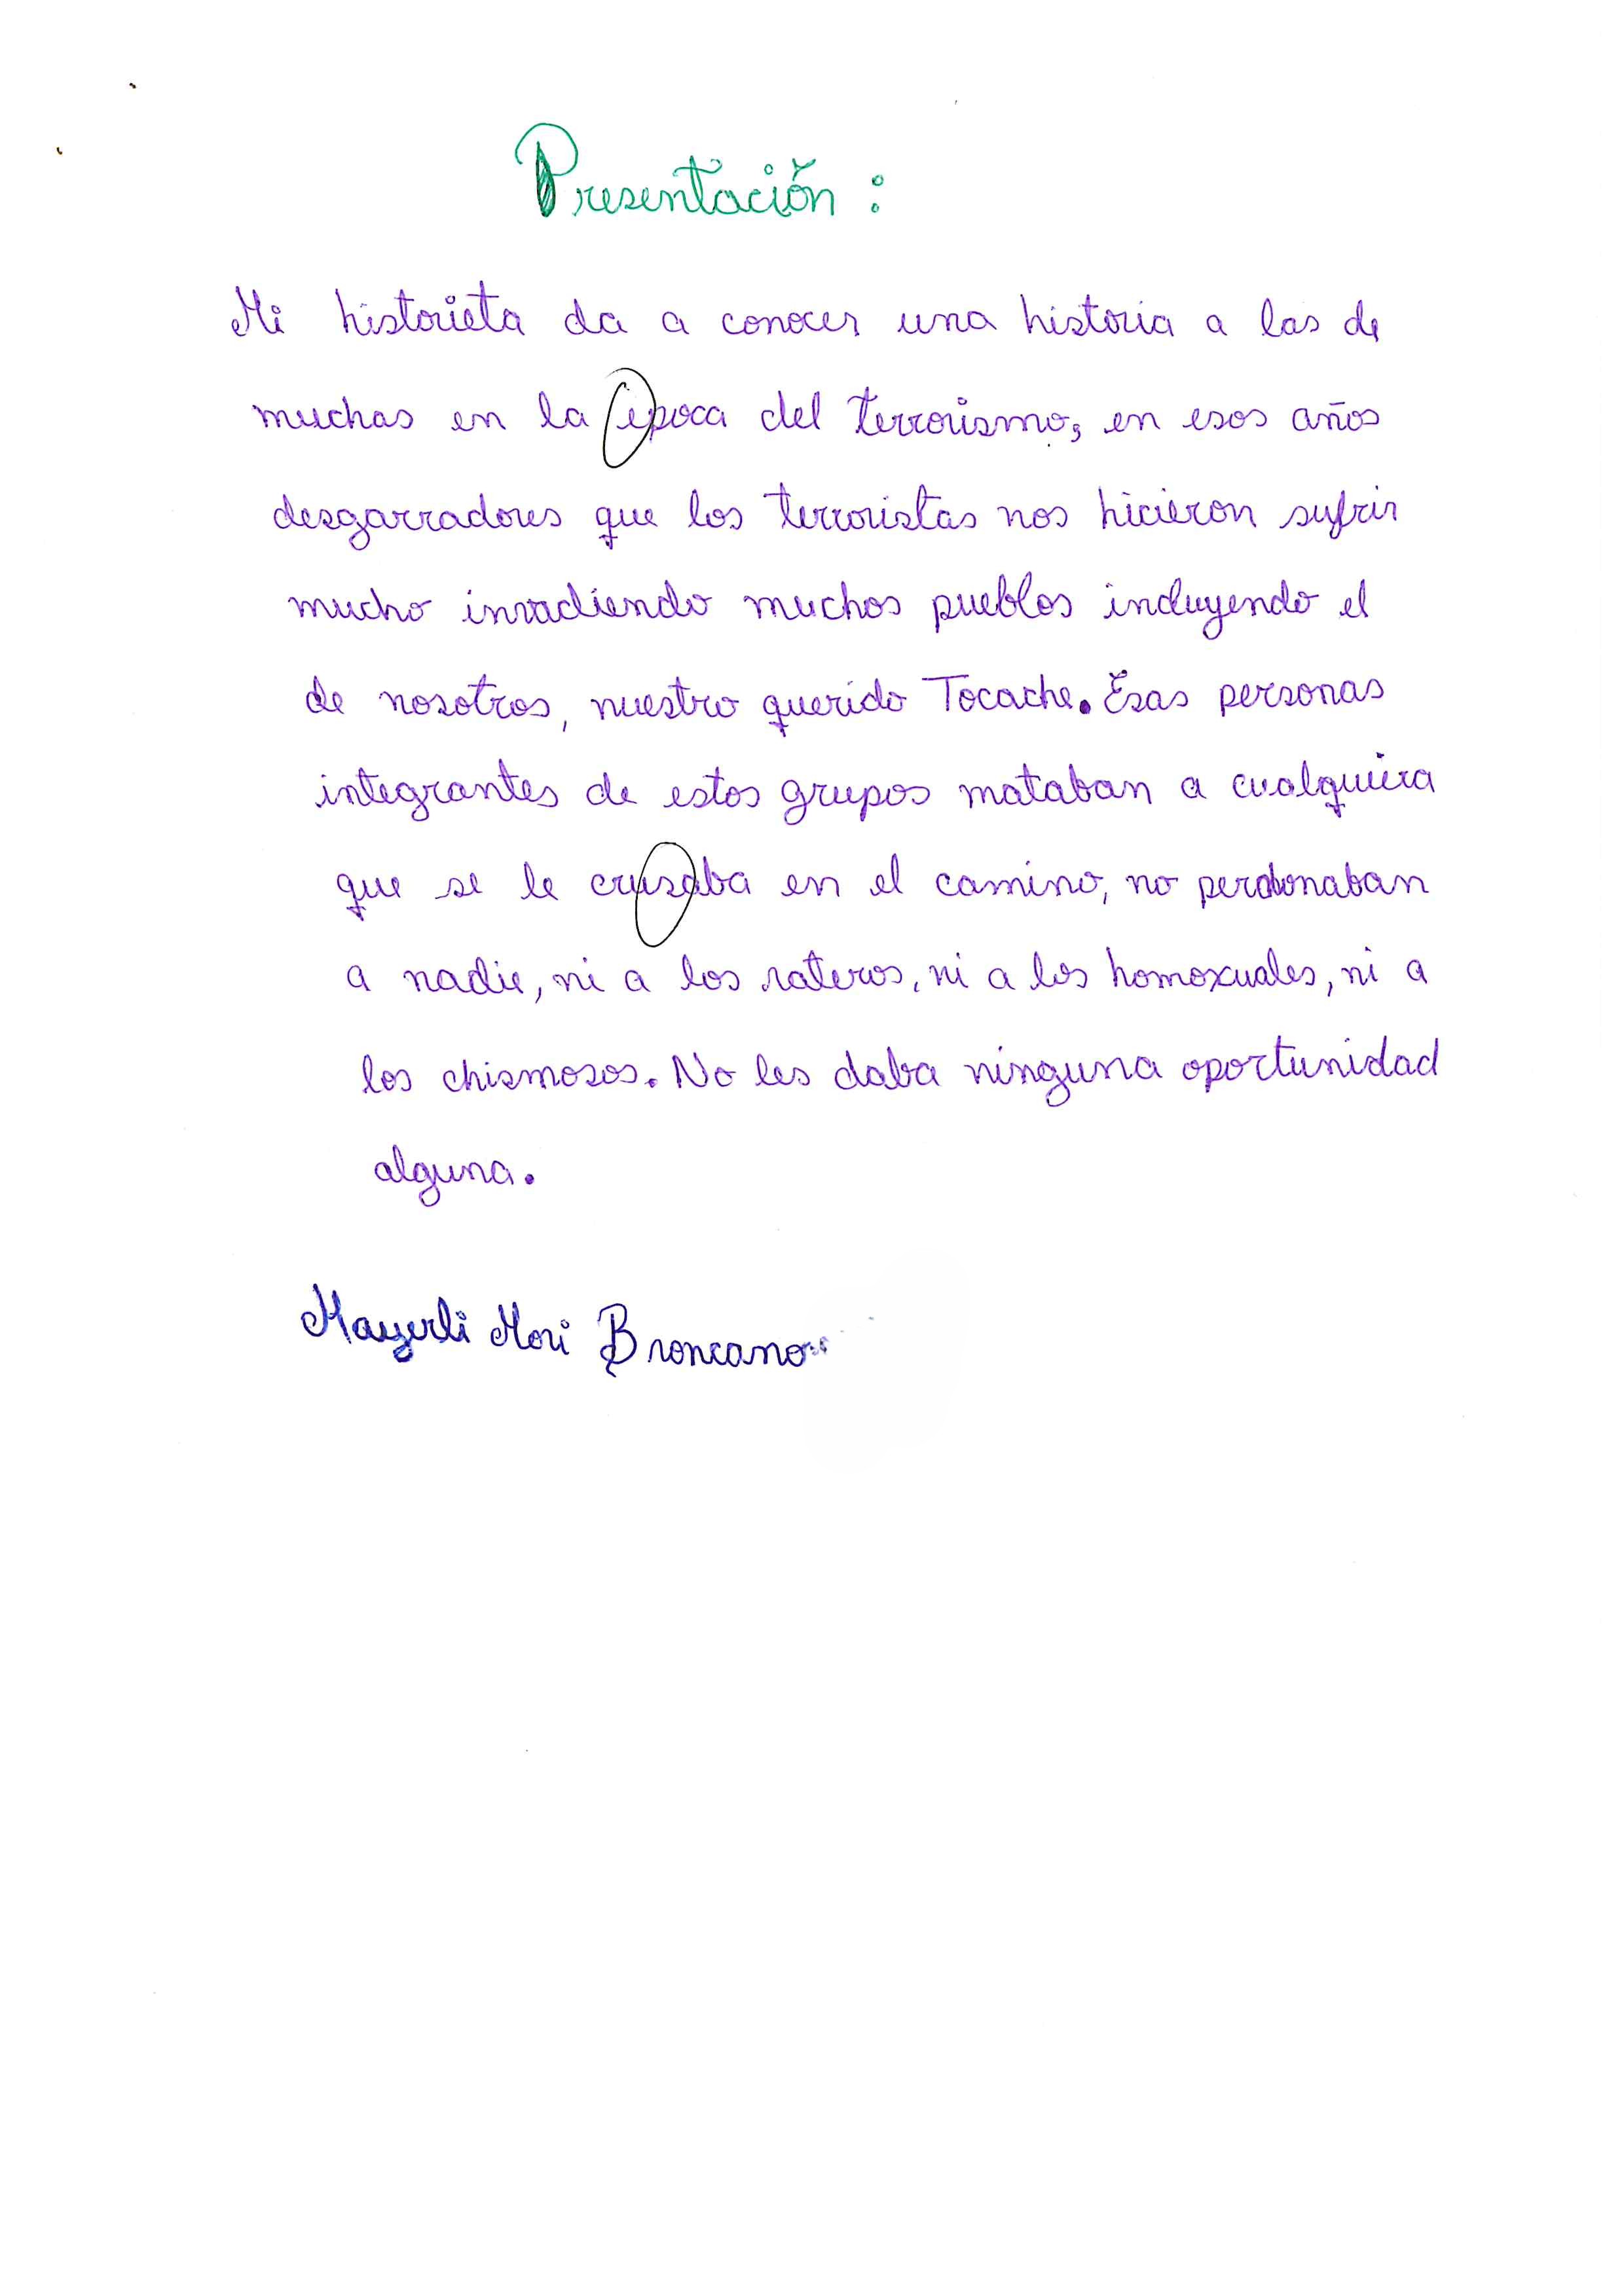 Presentación:
Mi historieta da a conocer una historia a las de
muchas en la época del terrorismo, en esos años
desgarradores que los terroristas nos hicieron sufrir
mucho invadiendo muchos pueblos incluyendo el
de nosotros, nuestro querido Tocache. Esas personas
integrantes de estos grupos mataban a cualquiera
que se le crusaba en el camino, no perdonaban
a nadie, ni a los rateros, ni a los homoxuales, ni a
los chismosos. No les daba ninguna oportunidad
alguna.
Mayerli Mori Broncano